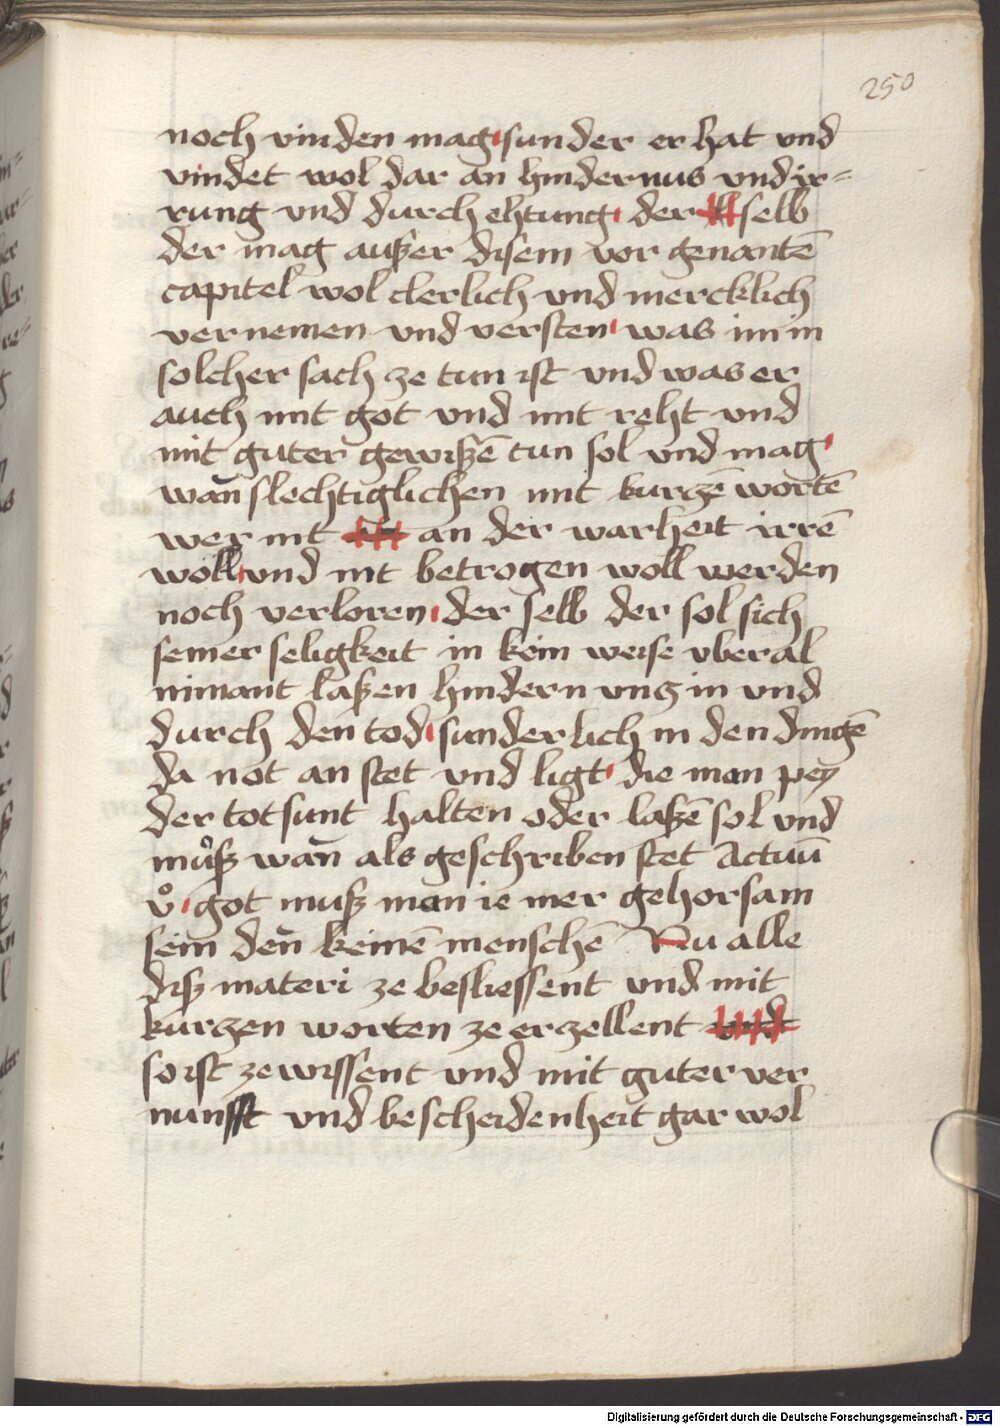 250
noch vinden mag sunder er hat vnd
vindet wol dar an hindernus vnd ir=
rung vnd durch ehtung der selb
der mag außer disem vor genantē
capitel wol clerlich vnd mercklich
vernemen vnd versten was im in
solcher sach ze tun ist vnd was er
auch mit got vnd mit reht vnd
mit guter gewißē tun sol vnd mag
wan̄ slechtiglichen mit kurczē wortē
wer nit an der warheit irrē
wöll vnd nit betrogen woll werden
noch verloren der selb der sol sich
seiner seligkeit in kein weise vberal
nimant laßen hindern vng in vnd
durch den tod sunderlich in den dingē
da not an stet vnd ligt die man pey
der totsunt halten oder laßē sol vnd
můß wan̄ als geschriben stet Actuū
v̊ got muß man ie mer gehorsam
sein den̄ keinē menschē Nu alle
diß materi ze besliessent vnd mit
kurczen worten ze erzellent
so ist ze wissent vnd mit guter ver
nunfft vnd bescheidenheit gar wol
Digitalisierung gefördert durch die Deutsche Forschungsgemeinschaft - DFG